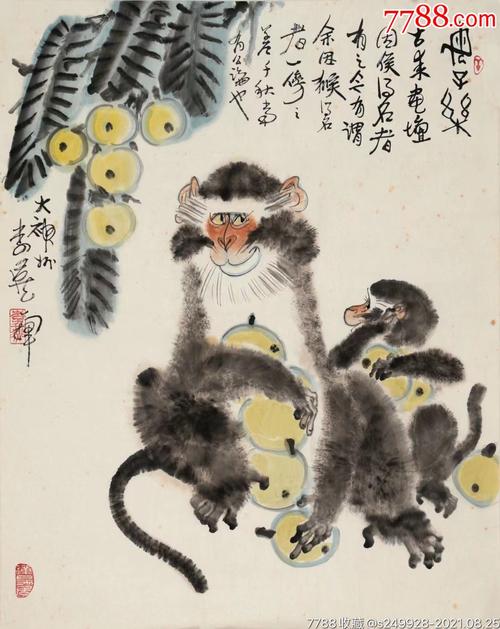 7788.com
子樂
古来画壇
因侯得名者
有之今有謂
余因猴得名
者一 之
千秋當
有公論也
大神州
李
7788收藏@s249928-2021.08.25